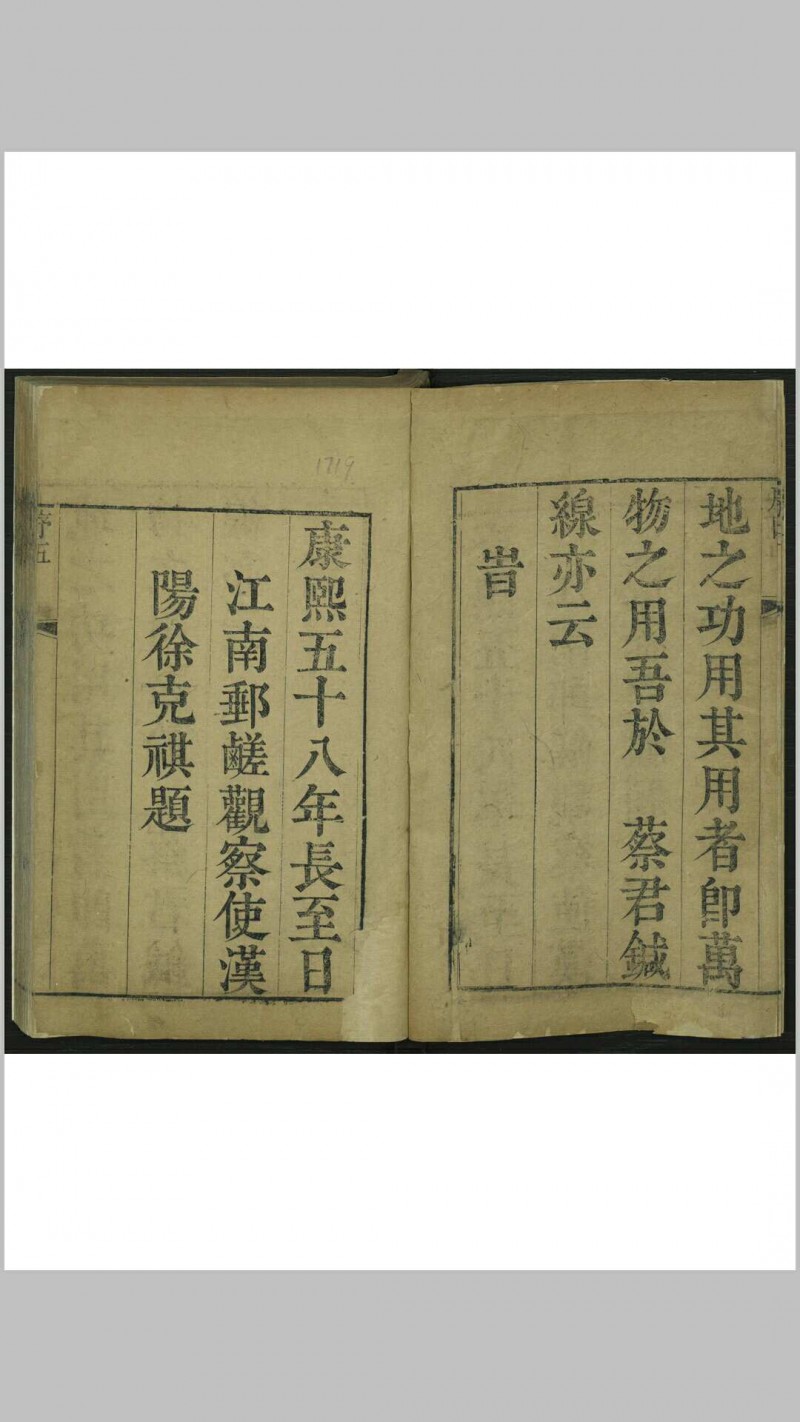 地之功用其用者卽萬
物之用吾於　蔡君鍼
線亦云
旹
康熙五十八年長至日
江南郵鹺觀察使漢
陽徐克祺題
序五
1719